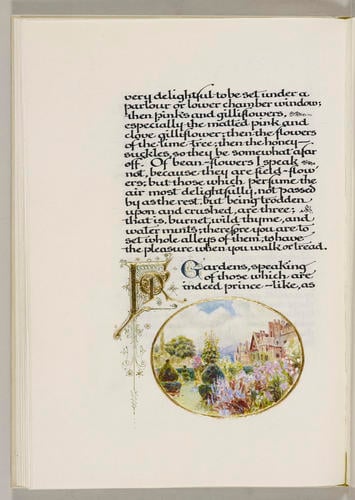 very delightful to be set under a
parlour or lower chamber window;
then pinks and gilliflowers,
especially the matted pink and
clove gilliflower; then the flowers
of the lime tree; then the honey-
suckles, so they be somewhat afar
off. Of bean-flowers I speak
not, because they are field-flow
ers; but those which perfume the
air most delightfully, not passed
by as the rest but being trodden
upon and crushed, are three;
that is, burnet, wild thyme, and
water mints; therefore you are to
set whole alleys of them, to have
the pleasure when you walk or tread.
FOR Gardens, speaking
of those which are
indeed prince-like, as